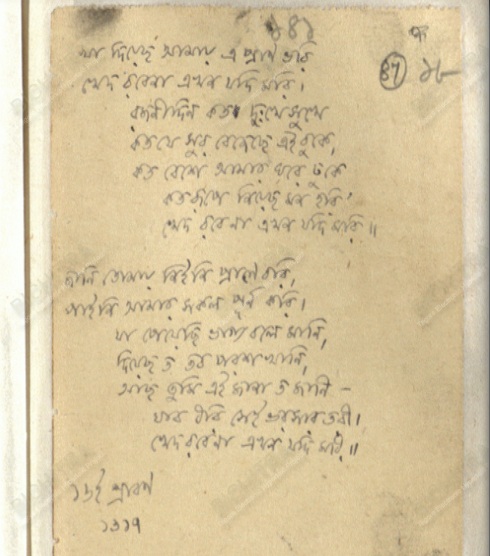 ১৪১
87
১৮
যা দিয়েছ আমায় এ প্রাণ ভরি
খেদ রবেনা এখন যদি মরি।
রজনীদিন কত দুঃখে সুখে
কত যে সুর বেজেছে এই বুকে,
কত বেশে আমার ঘরে ঢুকে
কত রূপে নিয়েছ মন হরি'
খেদ রবেনা এখন যদি মরি॥
জানি তোমায় নিইনি প্রাণে বরি,
পাইনি আমার সকল পূর্ণ করি।
যা পেয়েছি ভাগ্য বলে মানি,
দিয়েছ ত তব পরশখানি,
আছ তুমি এই জানা ত জানি –
যাব ধরি সেই ভরসার তরী।
খেদ রবেনা এখন যদি মরি॥
১৬ই শ্রাবণ
১৩১৭